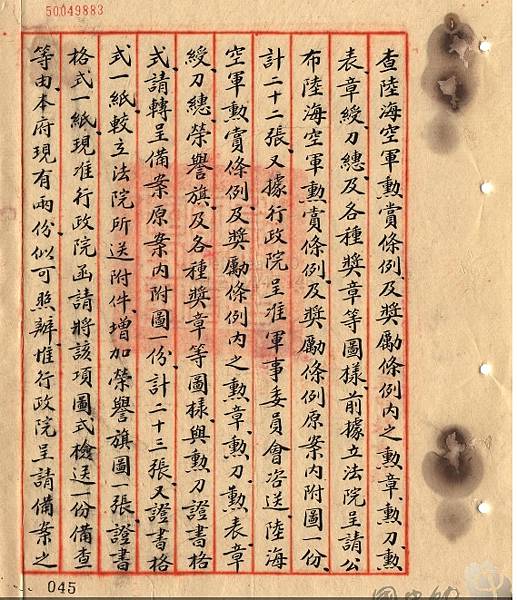 50049883
查陸海空軍勲賞條例及奬勵條例內之勲章、勲刀勲
表章綬刀繐及各種奬章等圖樣、前據立法院呈請公
布陸海空軍勲賞條例及奬勵條例原案內附圖一份、
計二十二張、又據行政院呈准軍事委員會咨送陸海
空軍勲賞條例及奬勵條例內之勲章、勲刀、勲表章
綬刀繐、榮譽旗、及各種奬章等圖樣、與勲刀證書格
式、請轉呈備案原案內附圖一份、計二十三張、又證書格
式一紙較立法院所送附件、增加榮譽旗圖一張、證書
格式一紙、現准行政院函請將該項圖式檢送一份備查
等由、本府現有兩份、似可照辦、惟行政院呈請備案之
045